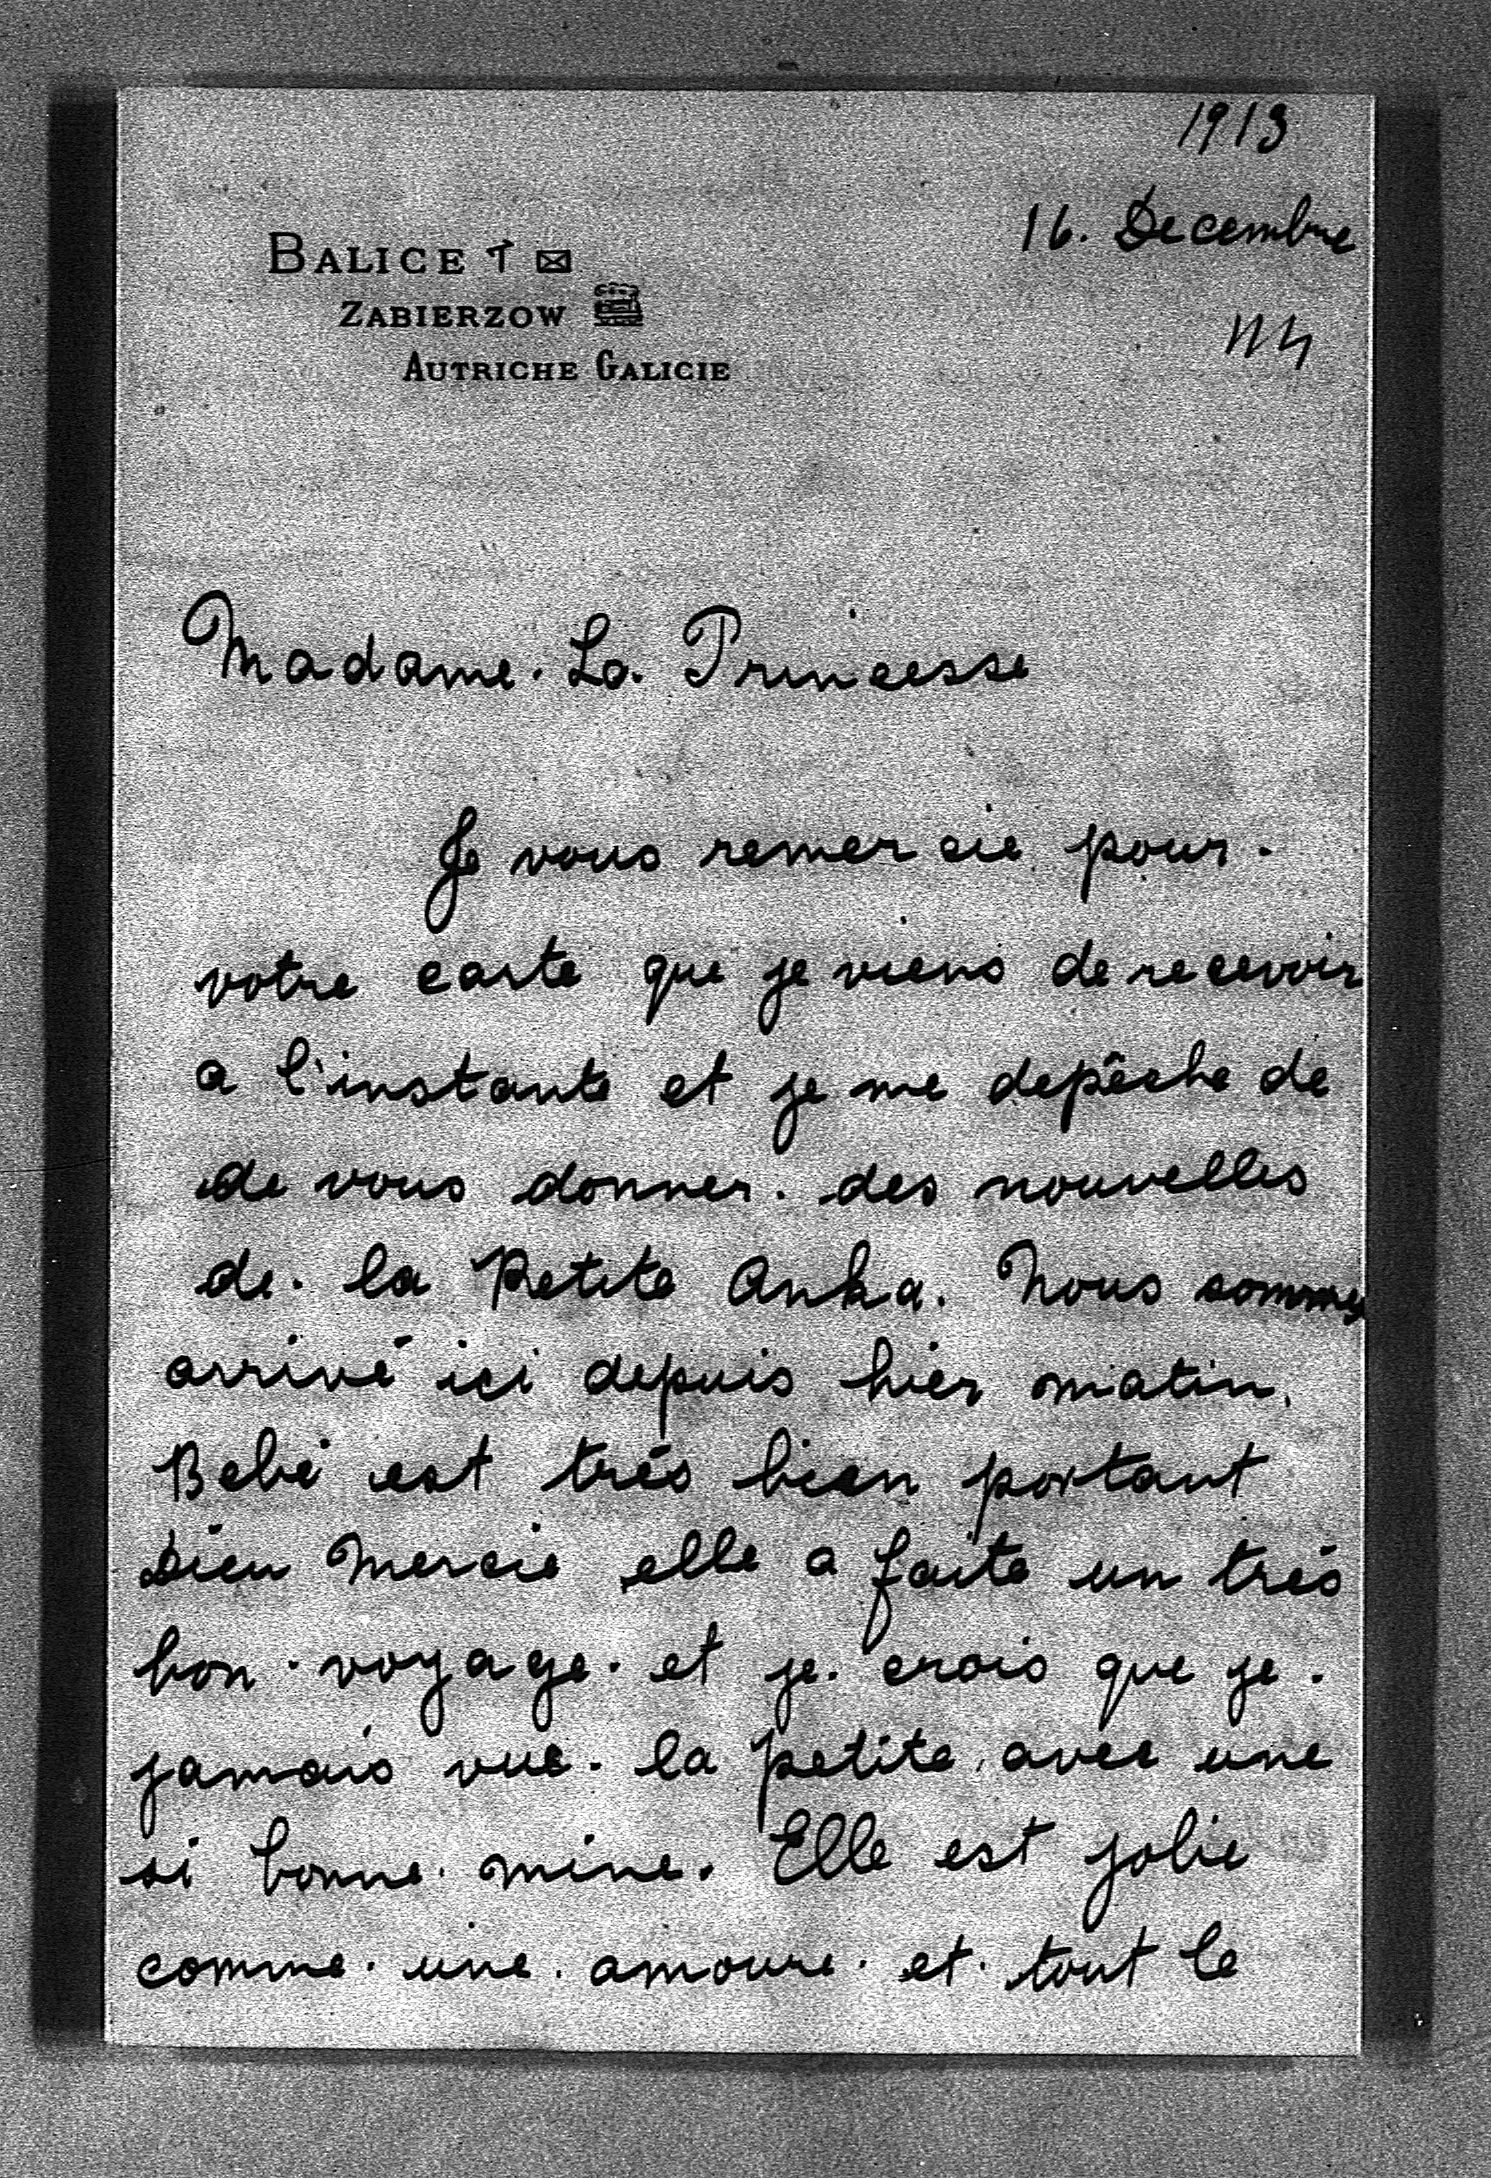 1913
16. Decembre
BALICE
ZABIERZOW
AUTRICHE GALICIE
Madame. La. Princesse
Je vous remercie pour.
votre carte que je viens de recevoir
a l'instante et je me depêche de
de vous donner. des nouvelles
de. la Petite Anka. Nous sommes
arrivé ici depuis hier matin.
Bebé est trés bien portant
Dieu Mercie elle a faite un trés
bon. voyage. et je. crois que je.
jamais vue. la petite avec une
si bonne. mine. Elle est jolie
comme. une. amoure. et. tout le